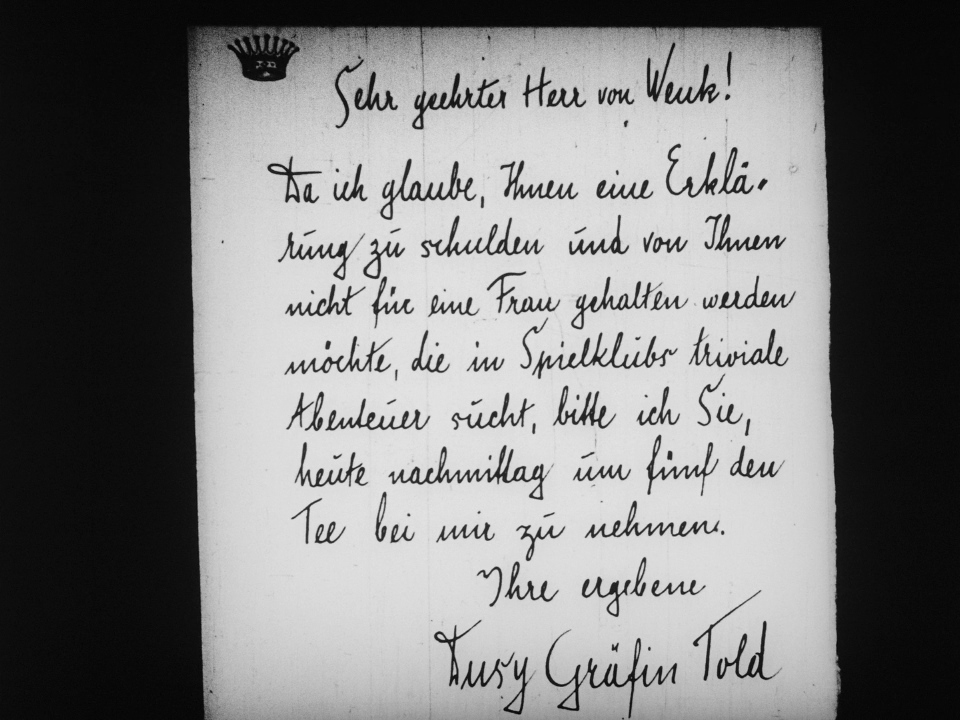 Sehr geehrter Herr von Wenk!
Da ich glaube, Ihnen eine Erklä-
rung zu schulden und von Ihnen
nicht für eine Frau gehalten werden
möchte, die in Spielklubs triviale
Abenteuer sucht, bitte ich Sie,
heute nachmittag um fünf den
Tee bei mir zu nehmen.
Ihre ergebene
Dusy Gräfin Told